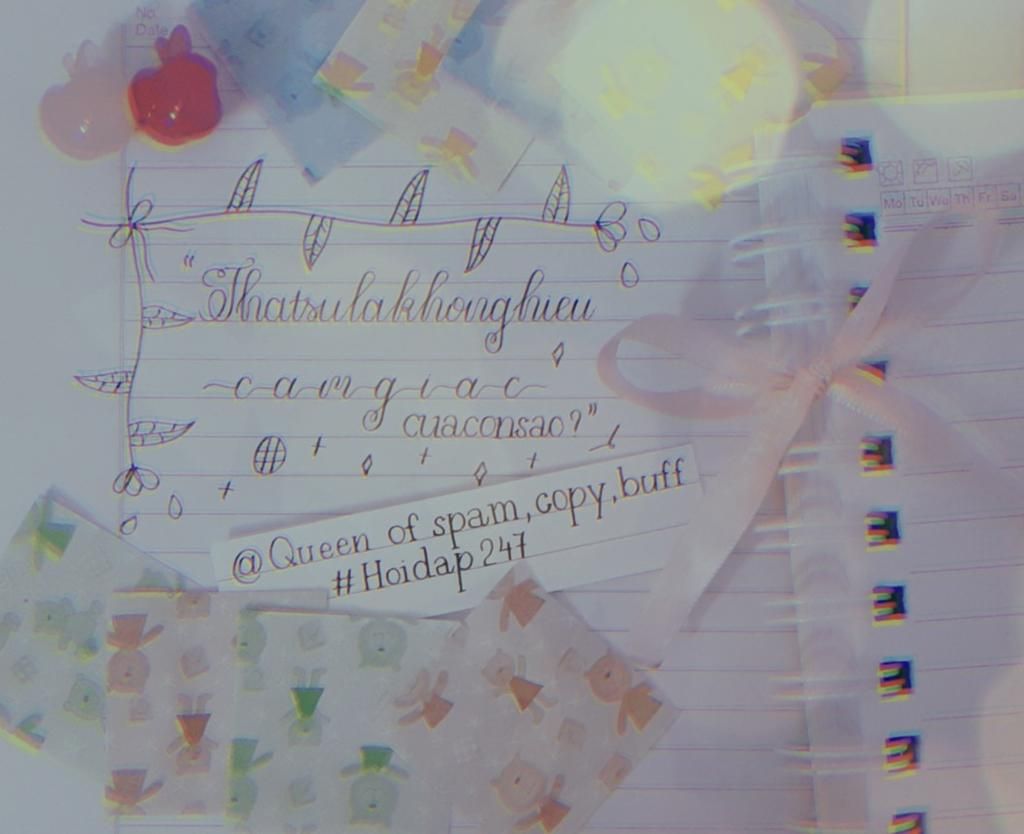 No.
Date
Mo Tu We Th Fr Sa
"Thatsulakhonghieu
~c~a~m~g~i~a~c~
cuaconsao?"
@Queen of spam,copy,buff
#Hoidap247